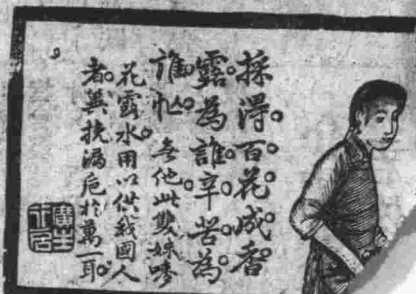 採得百花成香
露為誰辛苦為
誰忙。無他此雙妹嘜
花露水用以供我國人
者。冀挽漏卮於萬一耳。